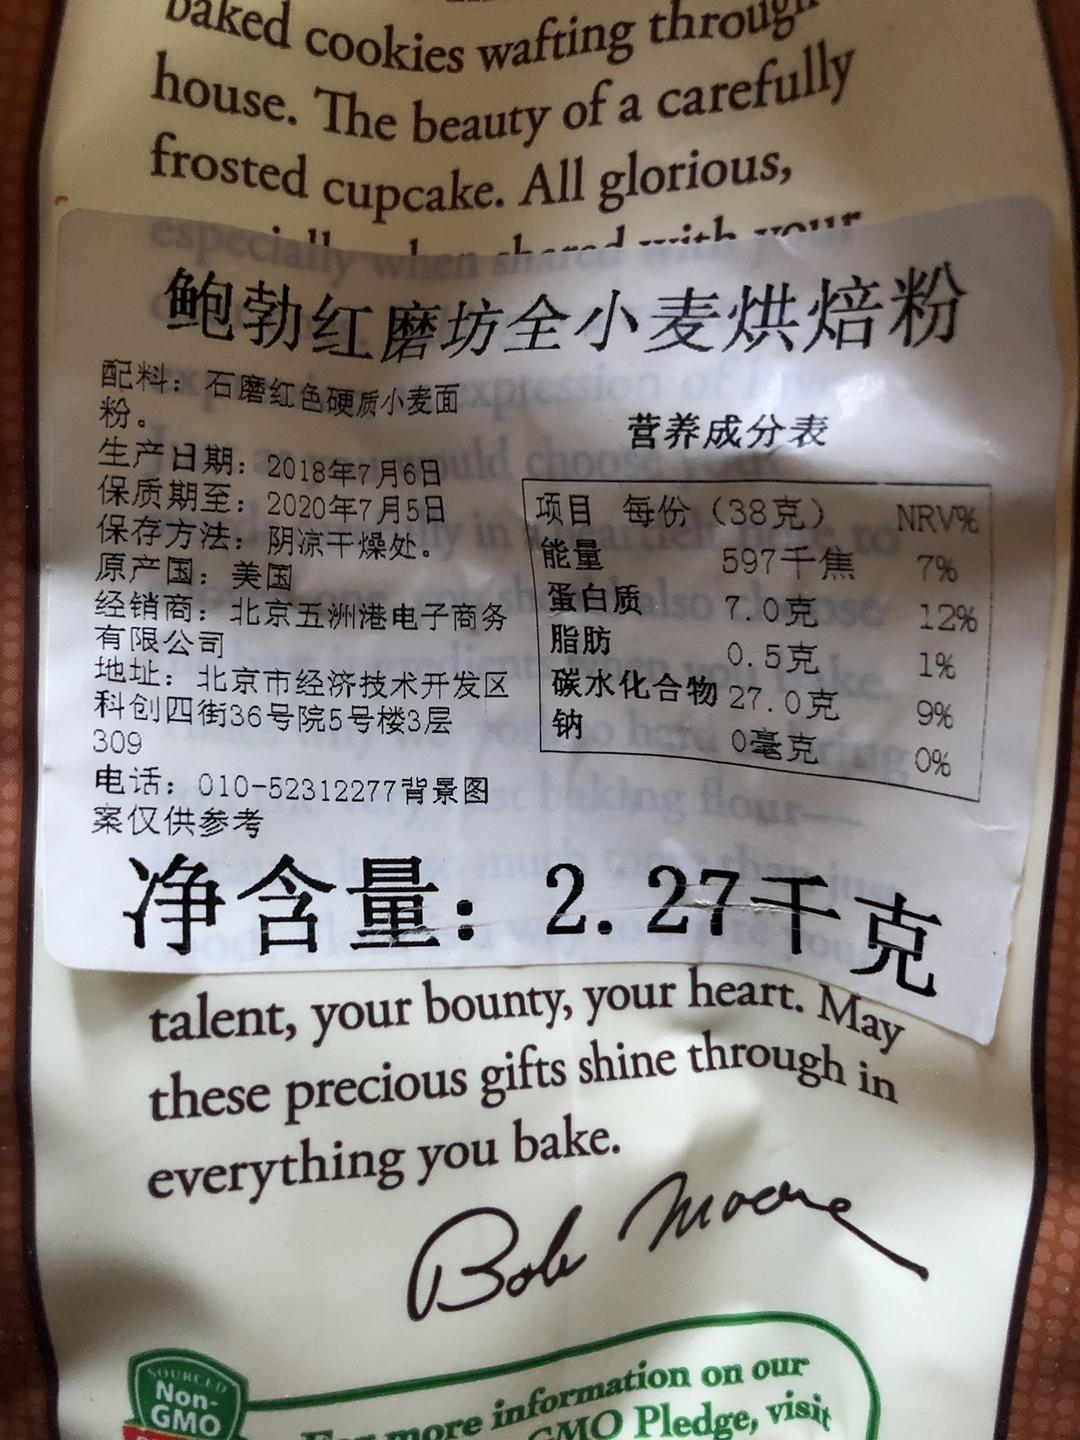 baked cookies wafting through
house. The beauty of a carefully
frosted cupcake. All glorious,
especially when shared with your
鲍勃红磨坊全小麦烘焙粉
配料：石磨红色硬质小麦面
粉。
生产日期：2018年7月6日
保质期至：2020年7月5日
保存方法：阴凉干燥处。
原产国：美国
经销商：北京五洲港电子商务
有限公司
地址：北京市经济技术开发区
科创四街36号院5号楼3层
309
电话：010-52312277背景图
案仅供参考
营养成分表
项目 每份（38克） NRV%
能量 597千焦 7%
蛋白质 7.0克 12%
脂肪 0.5克 1%
碳水化合物 27.0克 9%
钠 0毫克 0%
净含量：2.27千克
talent, your bounty, your heart. May
these precious gifts shine through in
everything you bake.
Bob Moore
SOURCED
Non-
GMO
For more information on our
GMO Pledge, visit